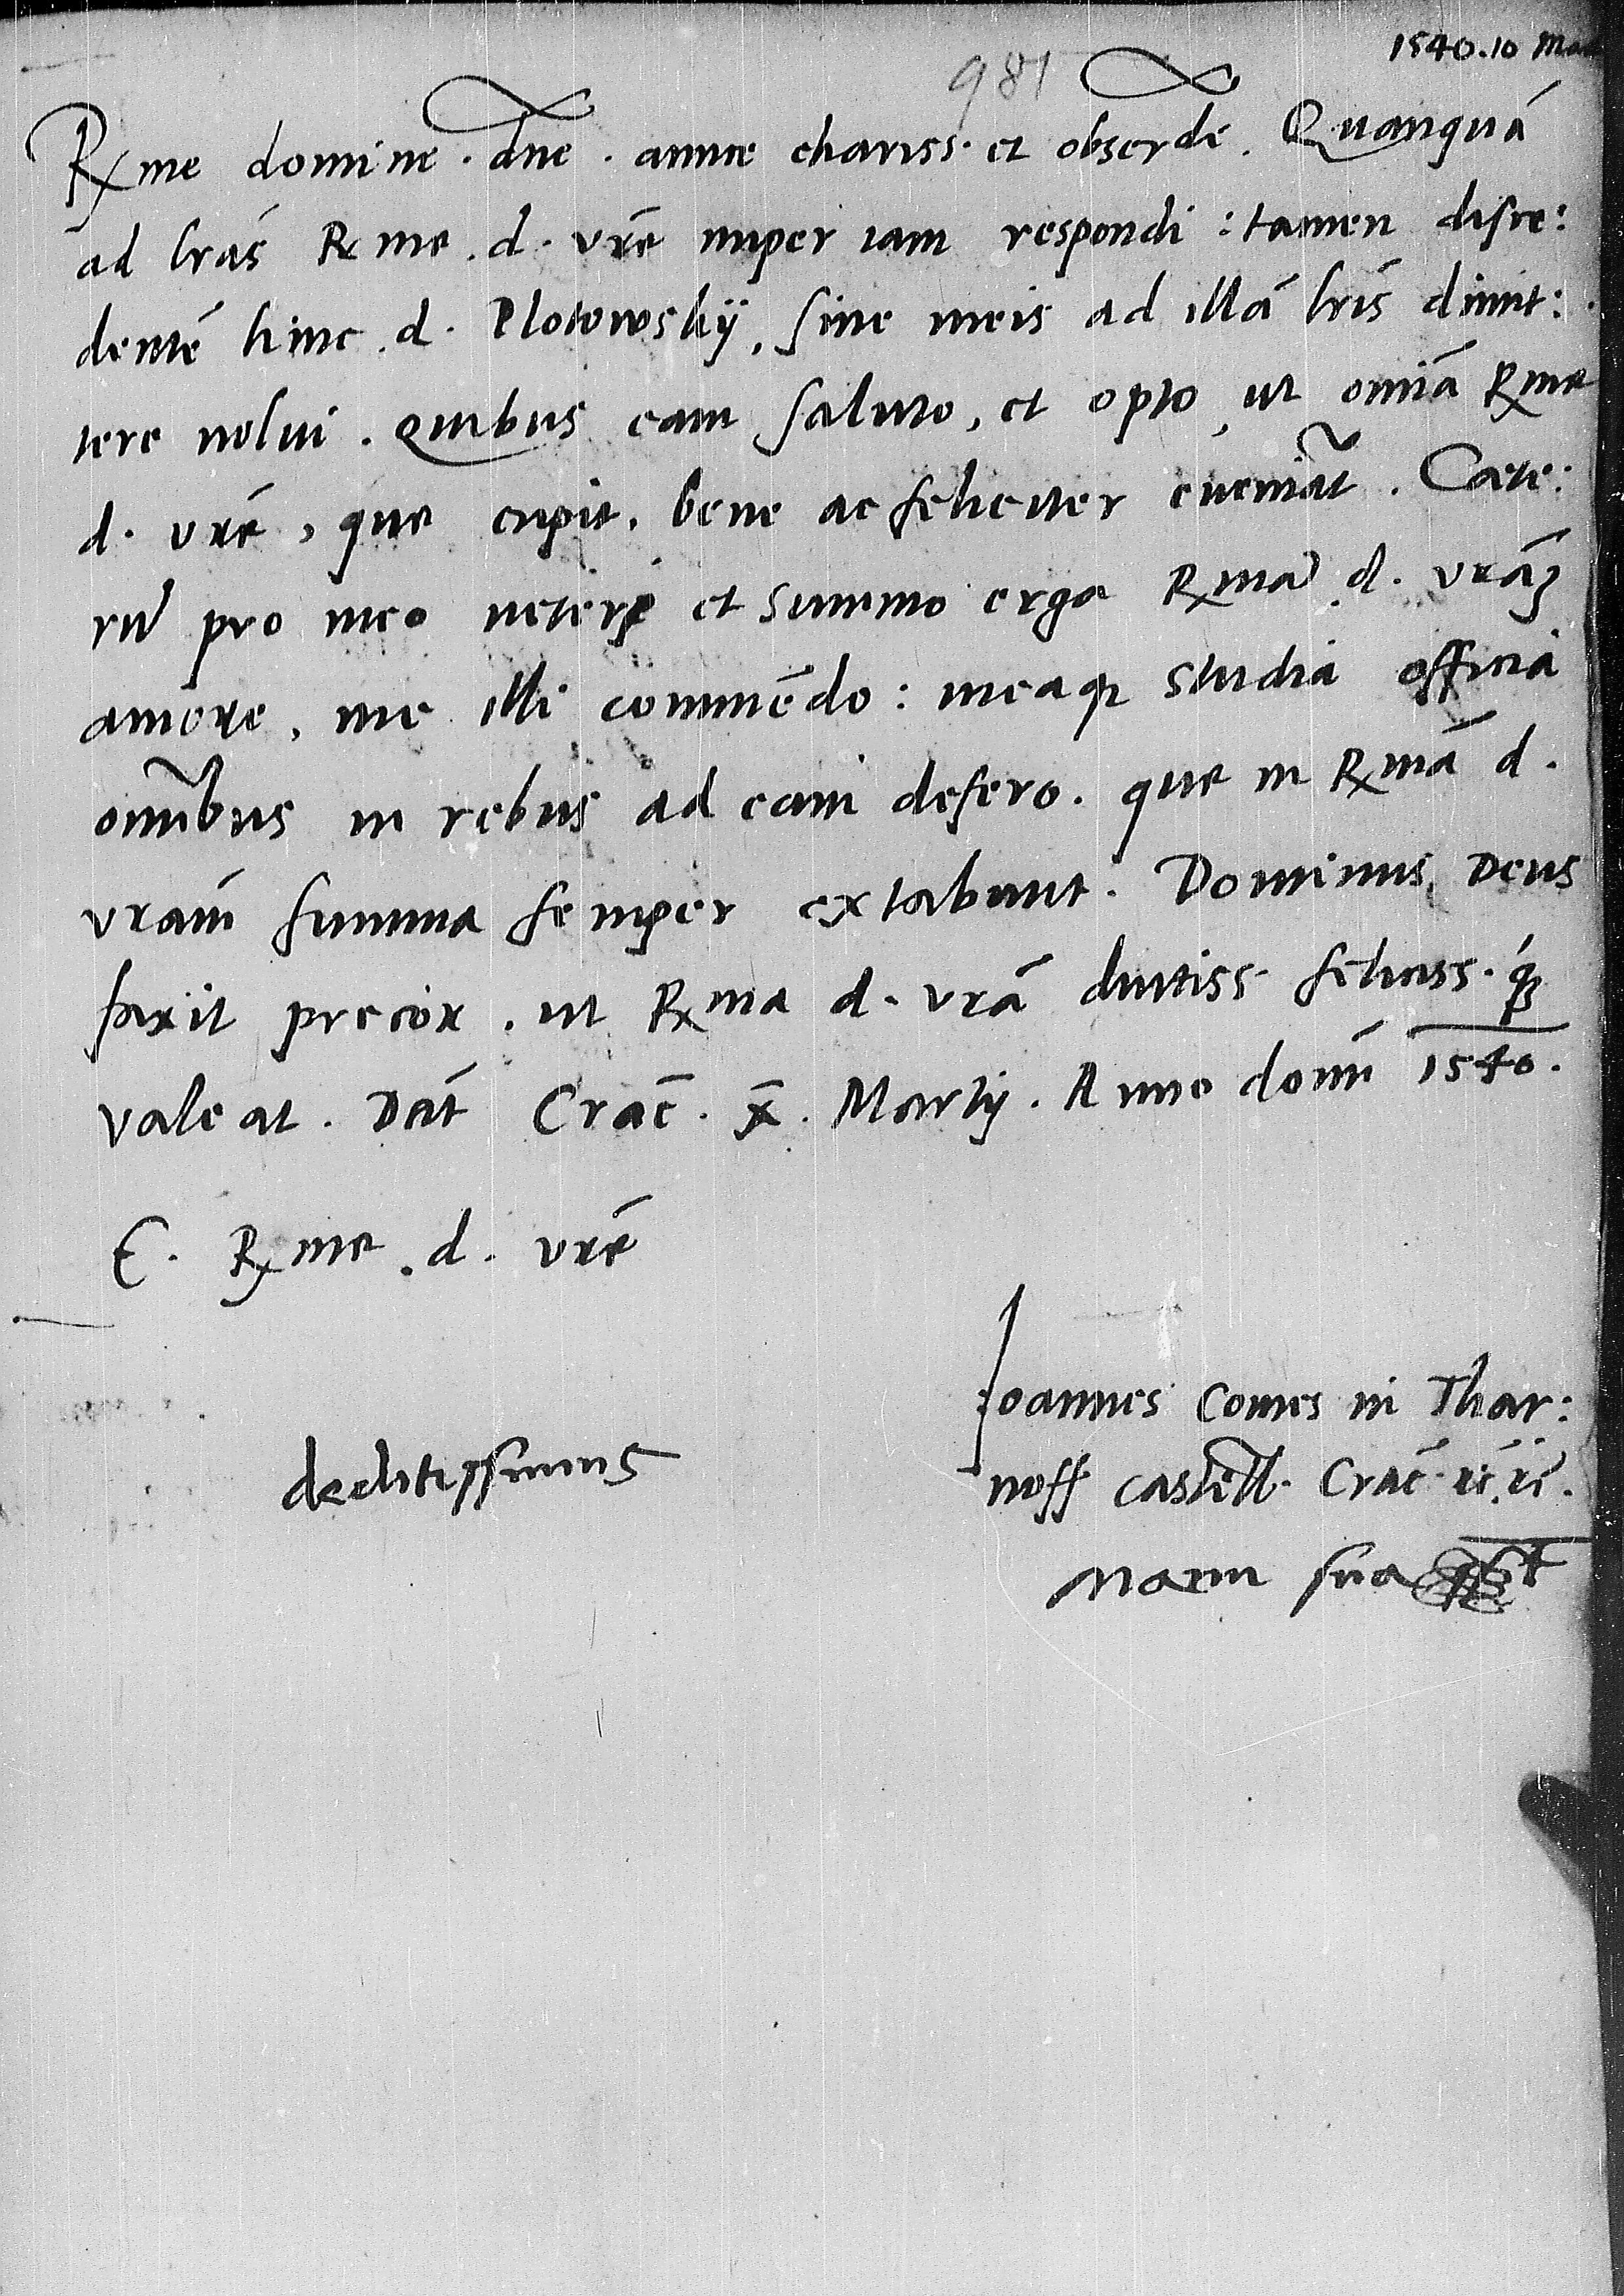 1540.10 Ma
981
Rxme domine . dne . amice chariss. et obserde . Quanquā
ad lrās Rxme . d . vrē nuper iam respondi : tamen disce:
dentē hinc . d . Plotowskÿ , sine meis ad illā lrīs dimit:
tere nolui . quibus eam saluto , et opto , ut omīa Rxme
d . vrē , que cupit . bene ac feliciter eveniāt . Cæte:
rū pro meo vetere et summo erga Rxmā d . vrām
amore , me illi commēdo : meaqz studia officia
omībus in rebus ad eam defero . que in Rxmā d .
vrām summa semper extabunt . Dominus Deus
faxit precor , ut Rxma d . vrā diutiss. feliciss. qz
valeat . Dāt Crāc . x̄ . Martÿ . Anno domī 1540 .
E . Rxme . d . vrē
Ioannes Comes in Thar:
deditissimus
noff castell. Crāc . rc̄ . rc̄ .
manu sua sst